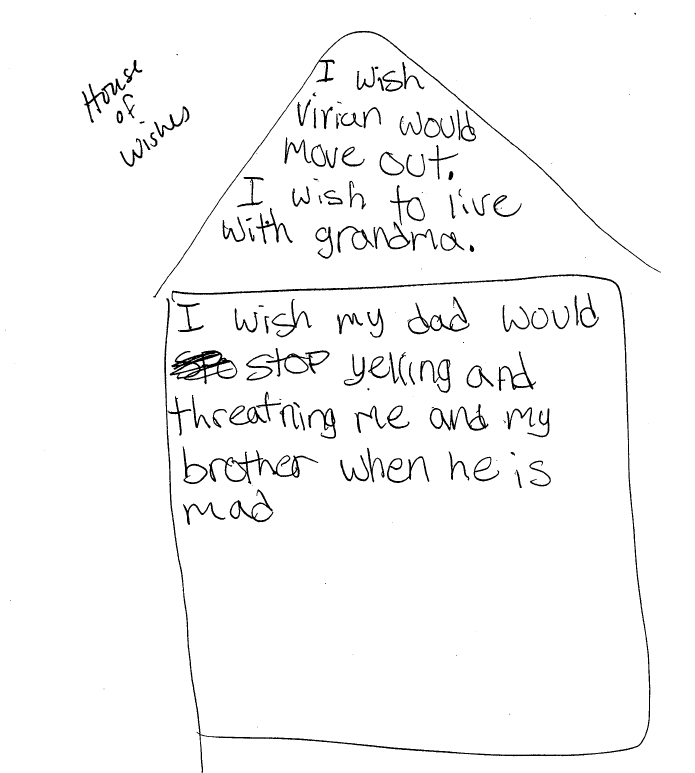 House
of
Wishes
I wish
Virian would
move out.
I wish to live
with grandma.
I wish my dad would
stop yelling and
threatning me and my
brother when he is
mad